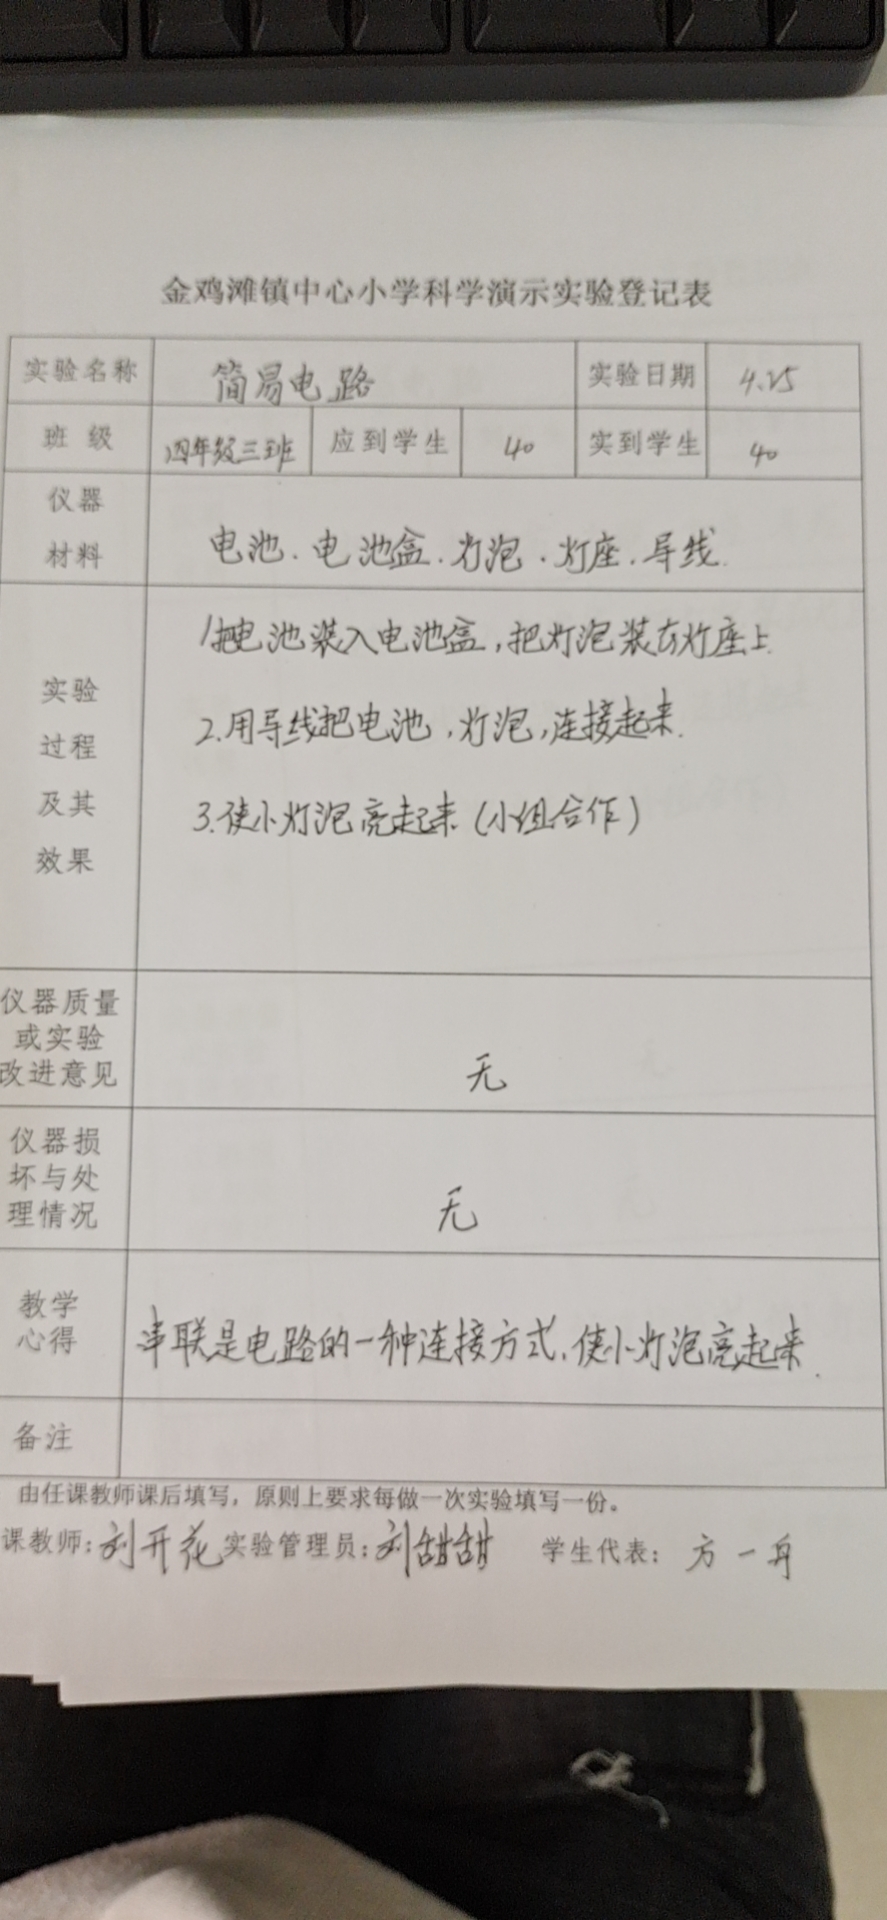 金鸡滩镇中心小学科学演示实验登记表
实验名称 简易电路 实验日期 4.25
班级 四年级三班 应到学生 40 实到学生 40
仪器
材料
电池.电池盒.灯泡.灯座.导线.
实验
过程
及其
效果
1把电池装入电池盒,把灯泡装在灯座上.
2.用导线把电池,灯泡,连接起来.
3.使小灯泡亮起来(小组合作)
仪器质量
或实验
改进意见
无
仪器损
坏与处
理情况
无
教学
心得
串联是电路的一种连接方式,使小灯泡亮起来.
备注
由任课教师课后填写，原则上要求每做一次实验填写一份。
课教师:刘开花 实验管理员:刘甜甜 学生代表:方一舟